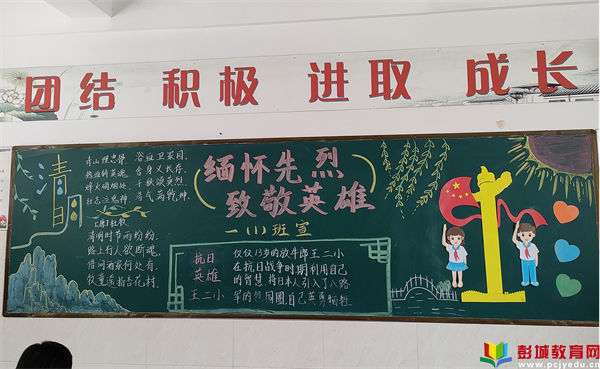 团结 积极 进取 成长
清明
青山埋忠骨
热血铸英魂
烽火硝烟处
壮志泣鬼神
浴血卫家国
舍身义长存
千秋颂英烈
浩气两乾坤
[唐]杜牧
清明时节雨纷纷,
路上行人欲断魂。
借问酒家何处有,
牧童遥指杏花村。
缅怀先烈
致敬英雄
一(1)班宣
抗日
英雄
王二小
仅仅13岁的放牛郎王二小
在抗日战争时期利用自己
的智慧,将日本人引入了八路
军的 圈,自己英勇牺牲
彭城教育网
www.pcjyedu.cn